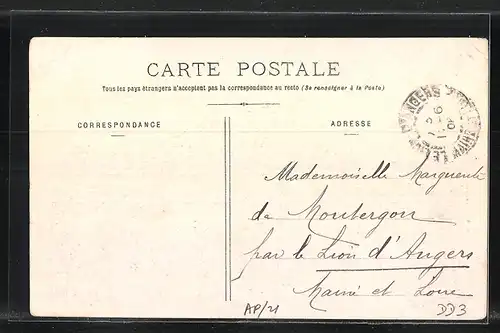 CARTE POSTALE
Tous les pays étrangers n'acceptent pas la correspondance au recto (Se renseigner à la Poste)
CORRESPONDANCE
ADRESSE
Mademoiselle Marguerite
de Montergon
par le Lion d'Angers
Maine et Loire
AP/21
DD3